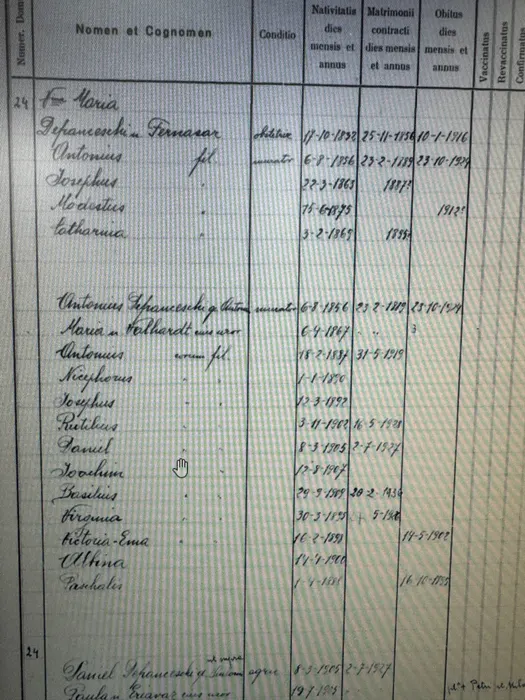 Numer. Dom
Nomen et Cognomen
Conditio
Nativitatis dies mensis et annus
Matrimonii contracti dies mensis et annus
Obitus dies mensis et annus
Vaccinatus
Revaccinatus
Confirmatus
24 Maria
Defranceschi n. Fernasar obstetrix 17-10-1832 25-11-1856 10-1-1916
Antonius fil. murator 6-8-1856 23-2-1889 23-10-1929
Josephus " 22-3-1863 1887?
Modestus " 15-6-1875 1912?
Catharina " 3-2-1869
Antonius Defranceschi q. Antonii murator 6-8-1856 23-2-1889 23-10-1929
Maria n. eius uxor 6-4-1867 " "
Antonius eorum fil. 31-5-1919
Nicephorus " " 1-1-1890
Josephus " " 12-3-1892
Rutilius " 3-11-1902 16-5-1928
Daniel " 8-3-1905 2-7-1927
Joachim " " 12-8-1907
Basilius " " 29-9-1909
Virginia " " 30-3-1895
Victoria-Ema " " 16-2-1898 14-5-1902
Albina 14-4-1900
Paschalis
24
Daniel Defranceschi q. Antonii agric 8-3-1905 2-7-1927
Paula n. eius uxor